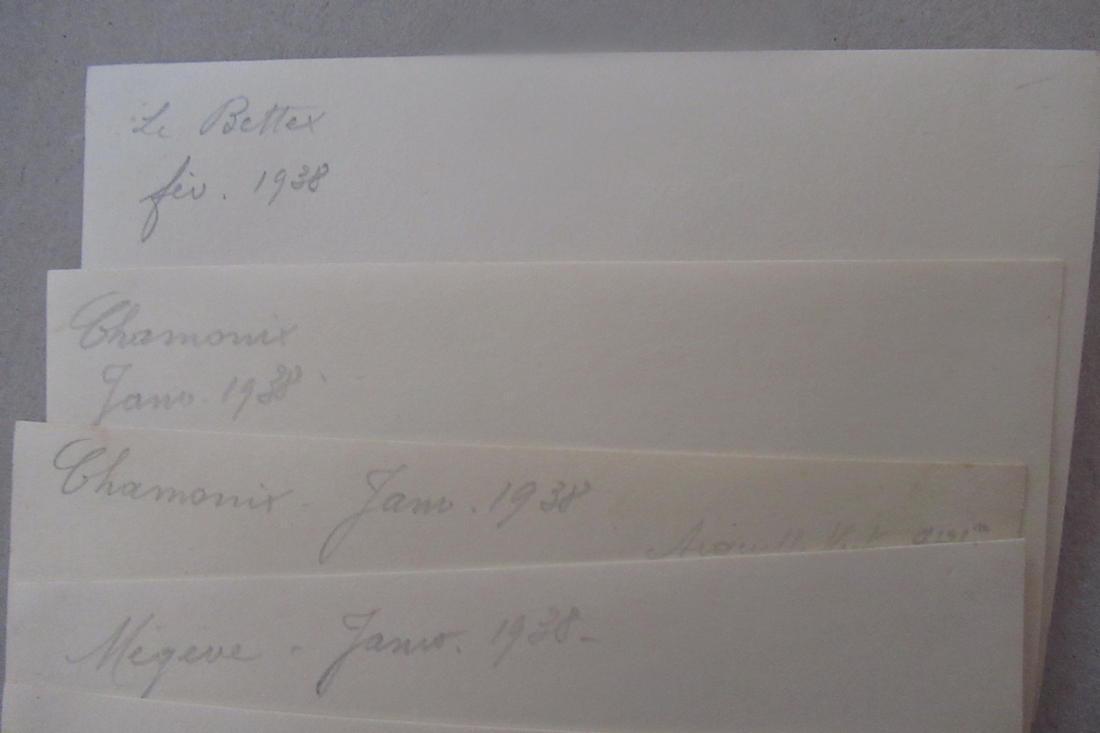 Le Bettex
fév. 1938
Chamonix
Janv. 1938
Chamonix - Janv. 1938
Mégève - Janv. 1938-